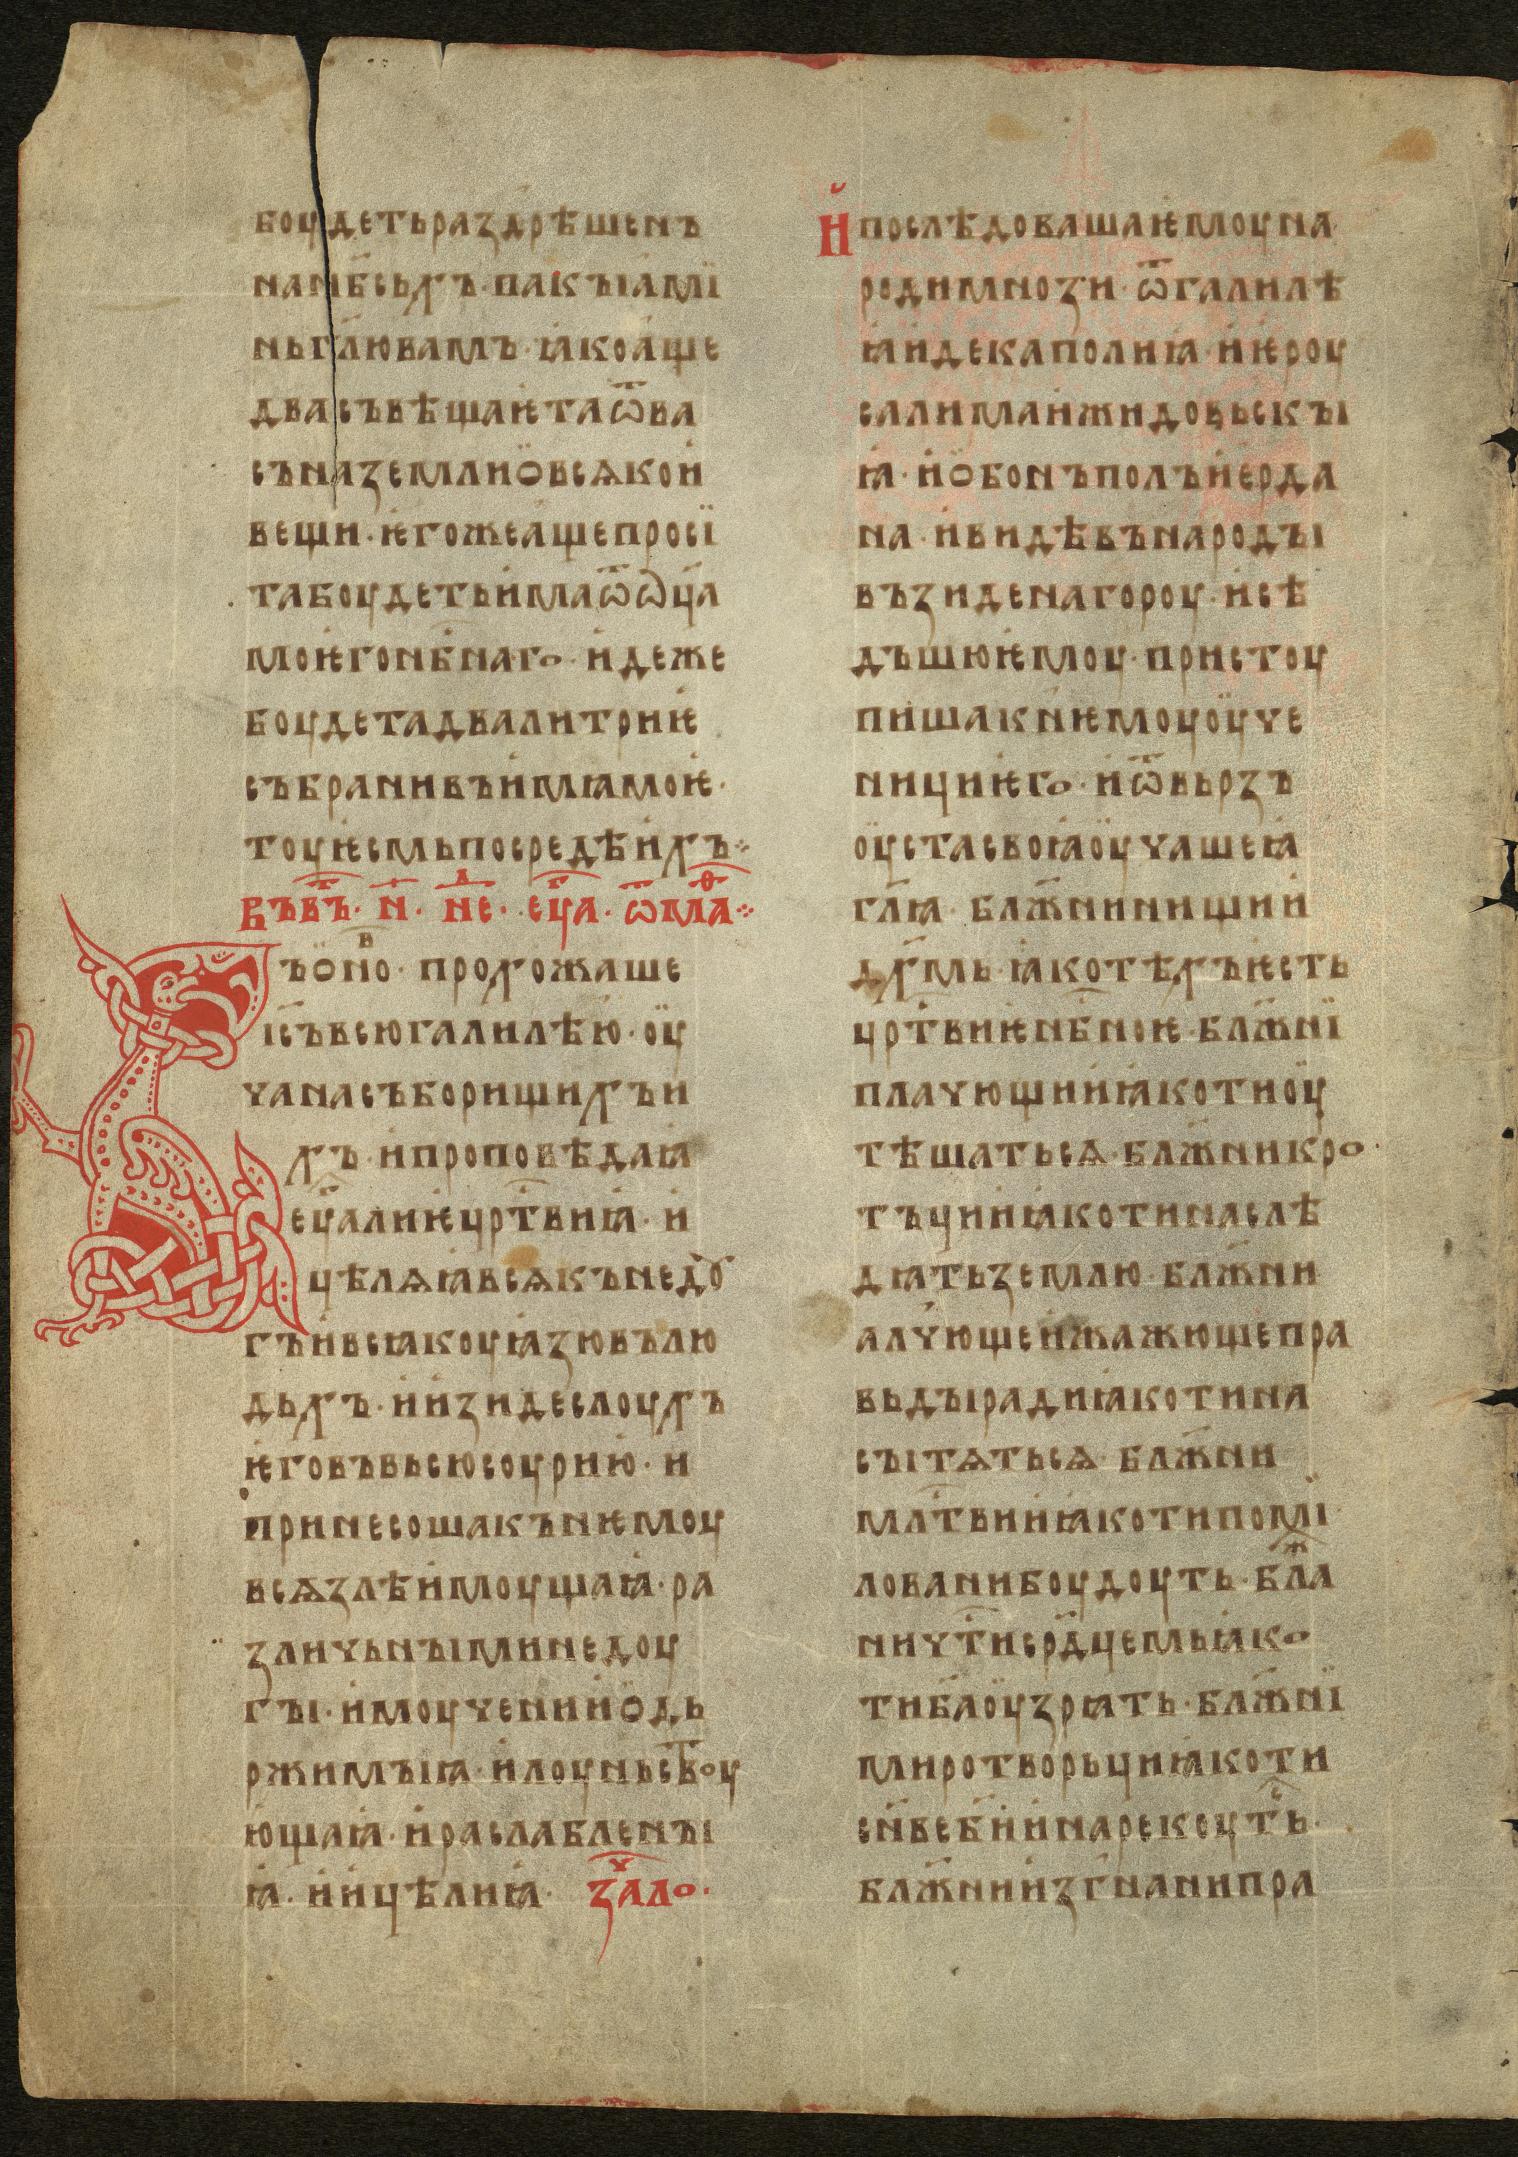 боудетьраздрѣшенъ
нан҃бсьхъ·пакыꙗмї
ньгл҃ювамъ·ꙗкоаще
двасъвѣщаѥтаѿва
съназемлиꙫвсѧкои
вещи·ѥгожеащепросї
табоудетьимаѿѡц҃а
моѥгонб҃наго·идеже
боудетадвалитриѥ
събранивъимꙗмоѥ·
тоуѥсмьпосредѣихъ⁘
Въвт҃ъ·н҃·не·еѵ҃а·ѿмѳ҃а⁘
ъꙫно·прохожаше
іс҃ъвсюгалилѣю·оу
чанасъборищихъи
хъ·ипроповѣдаꙗ
еу҃алиѥцр҃твиꙗ·и
цѣлѧꙗвсѧкънедѹ
гъивсꙗкоуꙗзювълю
дьхъ·иизидеслоухъ
ѥговъвьсюсоурию·и
принесошакънѥмоу
всѧзлѣимоущаꙗ·ра
зличьныминедоу
гы·имоучениꙫдь
ржимыꙗ·илоуньств҃оу
ющаꙗ·ираслаблены
ꙗ·иицѣлиꙗ· зач҃ало·
Ипослѣдовашаѥмоуна
родимнози·ѿгалилѣ
ꙗидекаполиꙗ·иѥроу
салимаижидовьскы
ꙗ·иꙫбонъполъиерда
на·ивидѣвънароды
възиденагороу·исѣ
дъшюѥмоу·пристоу
пишакнѥмоуоуче
нициѥго·иѿвьрзъ
оустасвоꙗоучашеꙗ
гл҃ꙗ·блж҃нинищии
дх҃мь·ꙗкотѣхъѥсть
цр҃твиѥнб҃ноѥ·блж҃нї
плачющииꙗкотиоу
тѣшатьсѧ·блж҃никро
тъцииꙗкотинаслѣ
дꙗтьземлю·блж҃ни
алчющеижажющепра
вьдырадиꙗкотина
сытѧтьсѧ·блж҃ни
млт҃виииꙗкотипомі
лованибоудоуть·блж҃а
ничт҃исрд҃цемьꙗко
тиб҃аоузрꙗть·блж҃нї
миротворьциꙗкоти
сн҃веб҃ииинарекоутьс҃·
блж҃ниизгнанипра